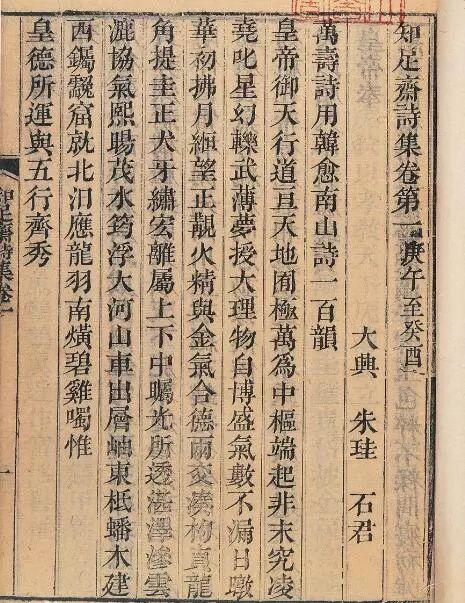 知足齋詩集卷第一庚午至癸酉
大興 朱珪 石君
萬壽詩用韓愈南山詩一百韻
皇帝御天行道亘天地囿極萬為中樞端起非末究凌
堯叱星幻轢武薄夢授大理物自博盛氣數不漏日暾
華初拂月緪望正覯火精與金氣合德兩交湊枸直龍
角提圭正犬牙繡宏離屬上下中矚光所透湛澤滲雲
漉協氣熙暘茂水筠浮大河山車出層岫東柢蟠木建
西鐊翳窟就北汨應龍羽南熿碧雞噣惟
皇德所運與五行齊秀
知足齋詩集卷一
一